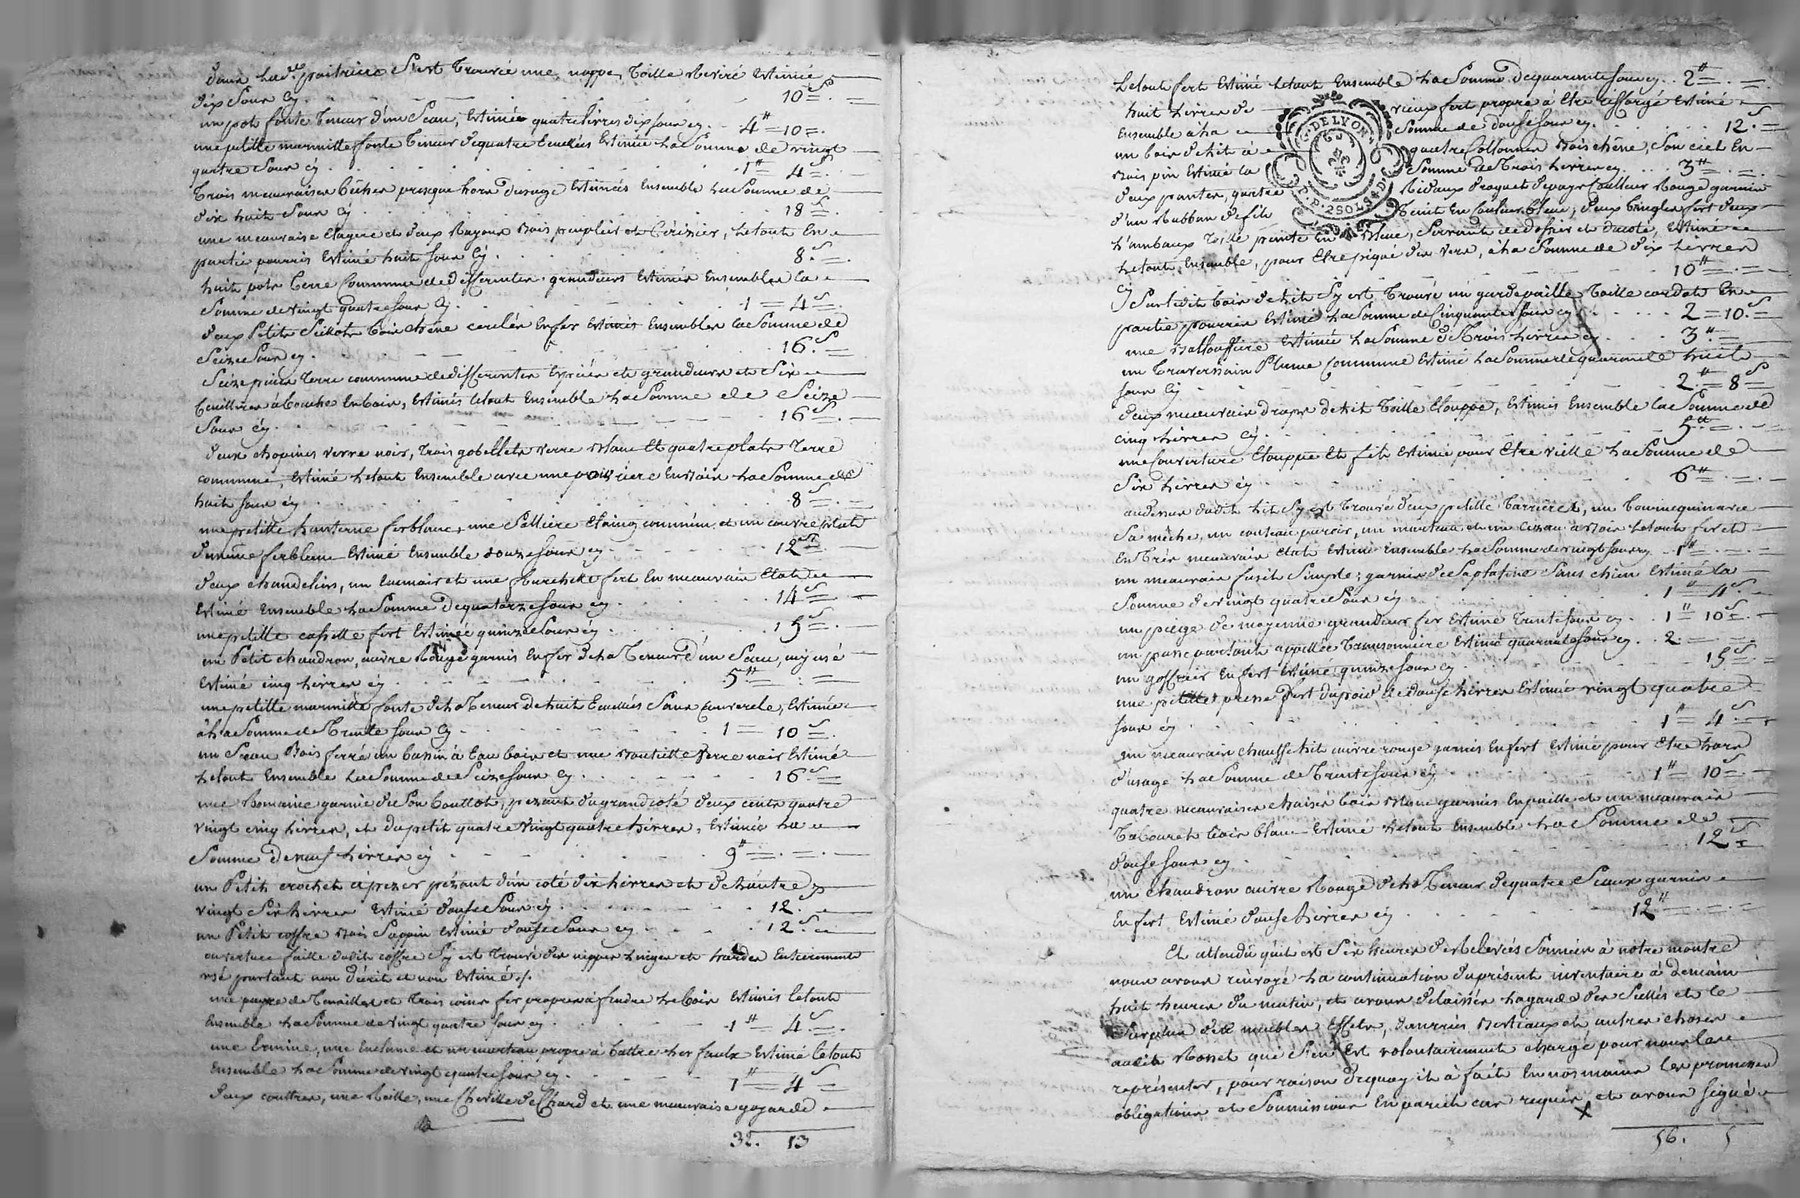 dans lad.e paitriere s'est trouvée une nappe, toille estimé
dix sous cy. 10 s
un pot fonte teneur d'une seau, estimée quatre livres dix sous cy. 4# 10
une petitte marmitte fonte teneur de quatre Ecuelles Estimée la Somme de vingt
quatre Sous cy. 1# 4 s
trois mauvaises bêches presque hors d'usage Estimées Ensemble la Somme de
dix huit Sous cy 18 s
une mauvaise Etagere et deux Rayons Bois peuplier et Cérisier, le tout En
partie pourris Estimé huit sous cy. 8 s
huit pots terre commune de differentes grandeurs Estimés Ensembles la
Somme de vingt quatre sous cy. 1 4 s
deux Petits Seillots bois chêne cerclés Enfer Estimés Ensembles la Somme de
Seize Sous cy. 16 s
Seize pieces terre commune de differentes Espéces et grandeurs et Six
Ceuilleres à bouche En bois, Estimés le tout Ensemble la Somme de Seize
Sous cy. 16 s
deux chopines verre noir, trois gobellets verre blanc Et quatre plats terre
commune, Estimé le tout Ensemble avec une poivriere En bois la Somme de
huit sous cy. 8 s
une petitte lanterne ferblanc, une Salliere Etaing commun, et un couvre plat
d'même ferblanc Estimé Ensemble douze sous cy 12 s
deux chandeliers, un et une fourchette fert En mauvais Etat
Estimé Ensemble la Somme de quatorze sous cy. 14 s
une petitte cassette fert Estimée quinze Sous cy. 15 s
un Petit chaudron, cuivre Rouge garnis En fer de la Teneur d'un Seau, my usé
Estimé cinq livres cy 5#
une petitte marmitte fonte de la Teneur de huit Ecuelles Sans Couvercle, Estimée
à la Somme de Trente sous cy. 1 10 s
un Seau Bois ferré un bassin à Eau bois et une Bouteille verre noir Estimé
le tout Ensemble la Somme de Seize sous cy. 16 s
une Romaine garnie de Son Coullot, pezant du grand coté deux cents quatre
vingt cinq livres, et du petit quatre vingt quatre livres, Estimée la
Somme de neuf livres cy 9#
un Petit crochet à pezer pézant d'un coté dix livres et de l'autre
vingt Six livres Estimé douse Sous cy. 12
un Petit coffre Bois Sappin Estimé douse Sous cy. 12 s
ouverture faitte dudit coffre S'y est Trouvé des nippes linges et hardes Entierement
usé pourtant non décrit et non Estimé
une payre de Tenailles et Trois coins fer propres à fendre le bois Estimés le tout
Ensemble la Somme de vingt quatre Sous cy. 1# 4 s
une hermine, une Enclume et un marteau propre à battre les faulx Estimé le tout
Ensemble la Somme de vingt quatre sous cy. 1# 4 s
deux couttres, une Reille, une Cheville de Chard et une mauvaise gojarde
32. 13
le tout fert Estimé le tout Ensemble la Somme de quarente sous cy. 2#
huit livres de vieux fert propre à Etre Efforgé Estimé
Ensemble à la Somme de douse sous cy. 12 s
un bois de lit à quatre Collonnes Bois chêne, Son ciel En
Bois pin Estimé la Somme de Trois livres cy. 3#
G. DE LYON
P. P. 2 SOLS 8 D.
deux pantes, quatre Rideaux Droguet de pays Coulleur Rouge garnis
d'un Rubban de fils Teint En Couleur bleue, deux tringles fert deux
Lambaux Toille peinte En Bleue, Servants de dossier et ducoté, Estimé
le tout Ensemble, pour Etre piqué des Vers, à la Somme de dix livres
cy 10#
Surledit bois de lit S'y est Trouvé un gardepaille Toille cordat En
partie pourrie Estimé la Somme de Cinquante sous cy 2 10 s
une Balouffiere Estimée la Somme de Trois livres cy 3#
un Traversain Plume Commune Estimé la Somme de quarente huit
sous cy 2# 8 s
deux mauvais draps de lit Toille Etouppe, Estimés Ensemble la Somme de
cinq livres cy. 5#
une Couverture Etouppe Et fils Estimé pour Etre vieille la Somme de
Six livres cy. 6#
audessus dudit lit S'y est Trouvé deux petitte barrieres, un Tournequin avec
Sa mêche, un couteau parois, un marteau et une cizeau à Bois le tout fer et
En très mauvais etat Estimé Ensemble la Somme de vingt sous cy. 1#
un mauvais fusil Simple, garnis de Sa platine Sans chien Estimé la
Somme de vingt quatre Sous cy 1# 4 s
un piége de moyenne grandeur fer Estimé Trente sous cy. 1# 10 s
un passepartout appellée Tronsonniere Estimé quarente sous cy. 2
un goffrier En fert Estimé quinze sous cy. 15 s
une petitte presse fert du poid de douse livres Estimée vingt quatre
sous cy 1# 4 s
un mauvais chauffelit cuivre rouge garnis En fert Estimé pour Etre hors
d'usage la Somme de Trente sous cy. 1# 10 s
quatre mauvaises chaises bois blanc garnis En paille et un mauvais
Tabouret bois blanc Estimé le tout Ensemble la Somme de
douse sous cy. 12 s
un chaudron cuivre Rouge de la Teneur de quatre Seaux garnis
En fert Estimé douse livres cy. 12#
Et attendu qu'il est Six heures de rélevées Sonnées à notre montre
nous avons renvoyé la continuation du présent inventaire à demain
huit heures du matin, et avons délaissés la garde des Scellés et le
Surplus des meubles Effets, danrrées Bestiaux et autres choses
audit Rosset que S'en Est volontairement chargé pour nous les
représenter, pour raison de quoy il à fait En nos mains les promesses
obligations et Soumissions En pareil cas requis et avons signé
56. 5